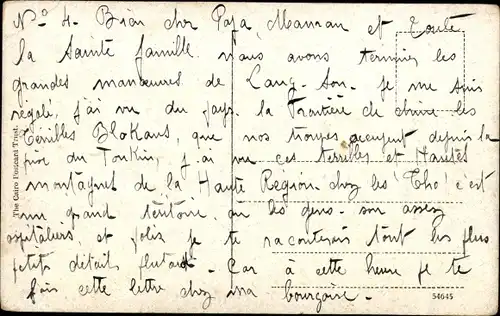 No 4. Bien cher Papa, Maman et toute
la Sainte famille. nous avons terminés les
grandes manœuvres de Lang-Son. je me suis
régalé, j'ai vu du pays. la Frontière de Chine les
terribles Blokaus, que nos troupes occupent depuis la
prise du Tonkin, j'ai vu ces terribles et Hautes
montagnes de la Haute Région chez les "Tho" c'est
un grand territoire, où les gens son assez
ospitaliers, et polis je te raconterais tout les plus
petits détails Car à cette heure je te
fais cette lettre chez ma bourgoise.
The Cairo Postcard Trust.
54645